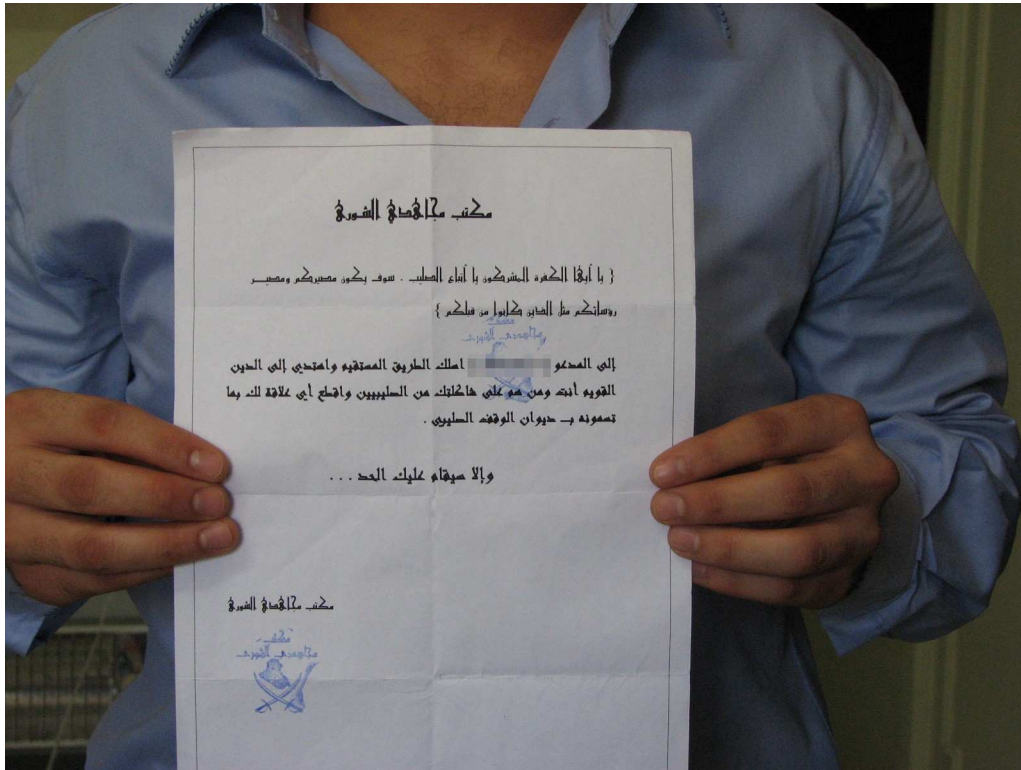 مكتب مجاهدي الشورى
{ يا أيها الكفرة المشركون يا أتباع الصليب . سوف يكون مصيركم ومصير
رؤسائكم مثل الذين كانوا من قبلكم }
مكتب
مجاهدي الشورى
إلى المدعو اسلك الطريق المستقيم واهتدي إلى الدين
القويم أنت ومن هو على شاكلتك من الصليبيين واقطع أي علاقة لك بما
تسمونه بـ ديوان الوقف الصليبي .
وإلا سيقام عليك الحد . . .
مكتب مجاهدي الشورى
مكتب
مجاهدي الشورى